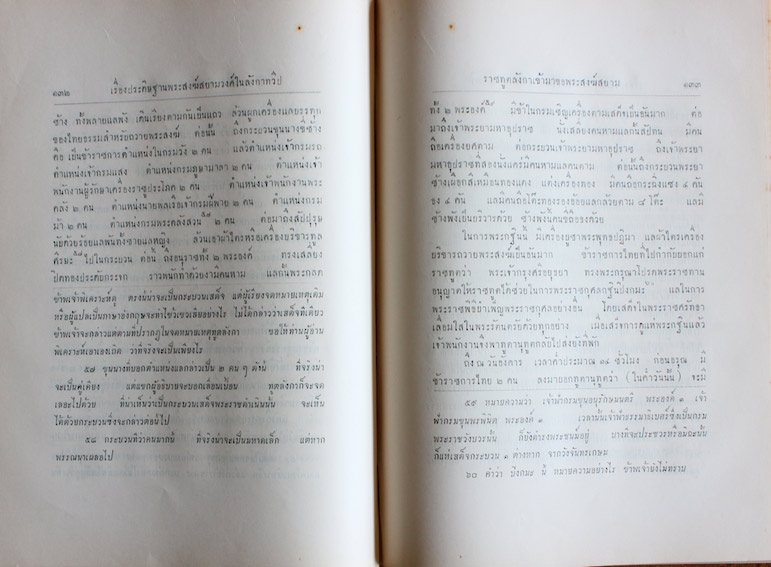 ๑๓๒ เรื่องประดิษฐานพระสงฆ์สยามวงศ์ในลังกาทวีป
ช้าง ทั้งพลายแลพัง เดินเรียงตามกันเป็นแถว ล้วนผูกเครื่องแลบรรทุก
ของไทยธรรมสำหรับถวายพระสงฆ์ ต่อนั้น ถึงกระบวนขุนนางขี่ช้าง
คือ เป็นข้าราชการตำแหน่งในกรมวัง ๒ คน แลตำแหน่งเจ้ากรมรถ
เจ้ากรมแสง ตำแหน่งกรมภูษามาลา ๒ คน ตำแหน่งเจ้า
พนักงานผู้รักษาเครื่องราชูประโภค ๒ คน ตำแหน่งเจ้าพนักงานพระ
คลัง ๒ คน ตำแหน่งนายพลเรือเจ้ากรมฝีพาย ๒ คน ตำแหน่งกรม
ม้า ๒ คน ตำแหน่งกรมพระคลังสวน ๕๗ ๒ คน ต่อมาถึงสัปปุรุษ
นับด้วยร้อยแลพันทั้งชายแลหญิง ล้วนเอาผ้าไตรหรือเครื่องบริขารทูล
ศีรษะ ๕๘ ไปในกระบวน ต่อนั้น ถึงอนุราชทั้ง ๒ พระองค์ ทรงเสลี่ยง
ปิดทองประดับกระจก ราวพนักทำด้วยงามีคนหาม แลกั้นพระกลด
ข้าพเจ้าพิเคราะห์ดู ตรงนี้น่าจะเป็นกระบวนเสด็จ แต่ผู้เรียงจดหมายเหตุเดิม
หรือผู้แปลเป็นภาษาอังกฤษจะทำไขว้เขวเสียอย่างไร ไม่ได้กล่าวว่าเสด็จทีเดียว
ข้าพเจ้าจะกล่าวแต่ตามที่ปรากฏในจดหมายเหตุทูตลังกา ขอให้ท่านผู้อ่าน
พิเคราะห์เอาเองเถิด ว่าที่จริงจะเป็นเพียงไร
๕๗ ขุนนางที่บอกตำแหน่งแลกล่าวเป็น ๒ คน ๆ ดังนี้ ที่จริงน่า
จะเป็นคู่เคียง แต่แขกผู้อธิบายจะบอกเลอะเปื้อน ทูตลังกาก็จะจด
เลอะไปด้วย ที่น่าเห็นว่าเป็นกระบวนเสด็จพระราชดำเนินนั้น จะเห็น
ได้ด้วยกระบวนซึ่งจะกล่าวต่อนี้ไป
๕๘ กระบวนที่ว่าคนมากนี้ ที่จริงน่าจะเป็นมหาดเล็ก แต่หาก
พรรณนาเผลอไป
ราชทูตลังกาเข้ามาขอพระสงฆ์สยาม ๑๓๓
ทั้ง ๒ พระองค์ ๕๙ มีข้าในกรมเชิญเครื่องตามเสด็จเป็นอันมาก ต่อ
มาถึงเจ้าพระยามหาอุปราช นั่งเสลี่ยงคนหามแลกั้นสัปทน มีคน
ถือเครื่องยศตาม ต่อกระบวนเจ้าพระยามหาอุปราช ถึงเจ้าพระยา
มหาอุปราชที่สองนั่งแคร่มีคนหามแลคนตาม ต่อนั้นถึงกระบวนพระยา
ช้างเผือกสีเหมือนทองแดง แต่งเครื่องทอง มีคนถือกระฉิ่งแซง ๔ คัน
ของ ๔ คน แลมีคนถือโต๊ะทองรองอ้อยแลกล้วยตาม ๔ โต๊ะ แลมี
ช้างพังเป็นบริวารด้วย ช้างพังนั้นคนขี่ถือของด้วย
ในการพระกฐินนี้ มีเครื่องบูชาพระพุทธปฏิมา แลผ้าไตรเครื่อง
บริขารถวายพระสงฆ์เป็นอันมาก ข้าราชการไทยที่ไปกำกับบอกแก่
ราชทูตว่า พระเจ้ากรุงศรีอยุธยา ทรงพระกรุณาโปรดพระราชทาน
อนุญาตให้ราชทูตใช้ช่วยในการพระราชกุศลกฐินปิงกมะ ๖๐ แลในการ
พระราชพิธีบำเพ็ญพระราชกุศลอย่างอื่น โดยเสด็จในพระราชศรัทธา
เลื่อมใสในพระรัตนตรัยด้วยทุกอย่าง เมื่อเสร็จการดูแห่พระกฐินแล้ว
เจ้าพนักงานจึงพาทูตานุทูตกลับไปส่งยังที่พัก
ถึง ณ วันอังคาร เวลาค่ำประมาณ ๑๔ ชั่วโมง ก่อนอรุณ มี
ข้าราชการไทย ๒ คน ลงมาบอกทูตานุทูตว่า (ในค่ำวันนั้น) จะมี
๕๙ หมายความว่า เจ้าฟ้ากรมขุนอนุรักษมนตรี พระองค์ ๑ เจ้า
ฟ้ากรมขุนพรพินิต พระองค์ ๑ เวลานั้นเจ้าฟ้าธรรมาธิเบศร์ซึ่งเป็นกรม
พระราชวังบวรนั้น ก็ยังดำรงพระชนม์อยู่ บางทีจะประชวรหรือมิฉะนั้น
ก็แห่เสด็จกระบวน ๑ ต่างหาก จากวังจันทรเกษม
๖๐ คำว่า ปิงกมะ นี้ หมายความอย่างไร ข้าพเจ้ายังไม่ทราบ